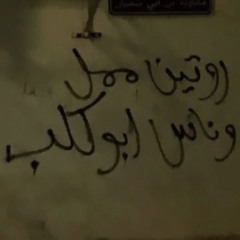 روتين ممل
وناس ابو كلب